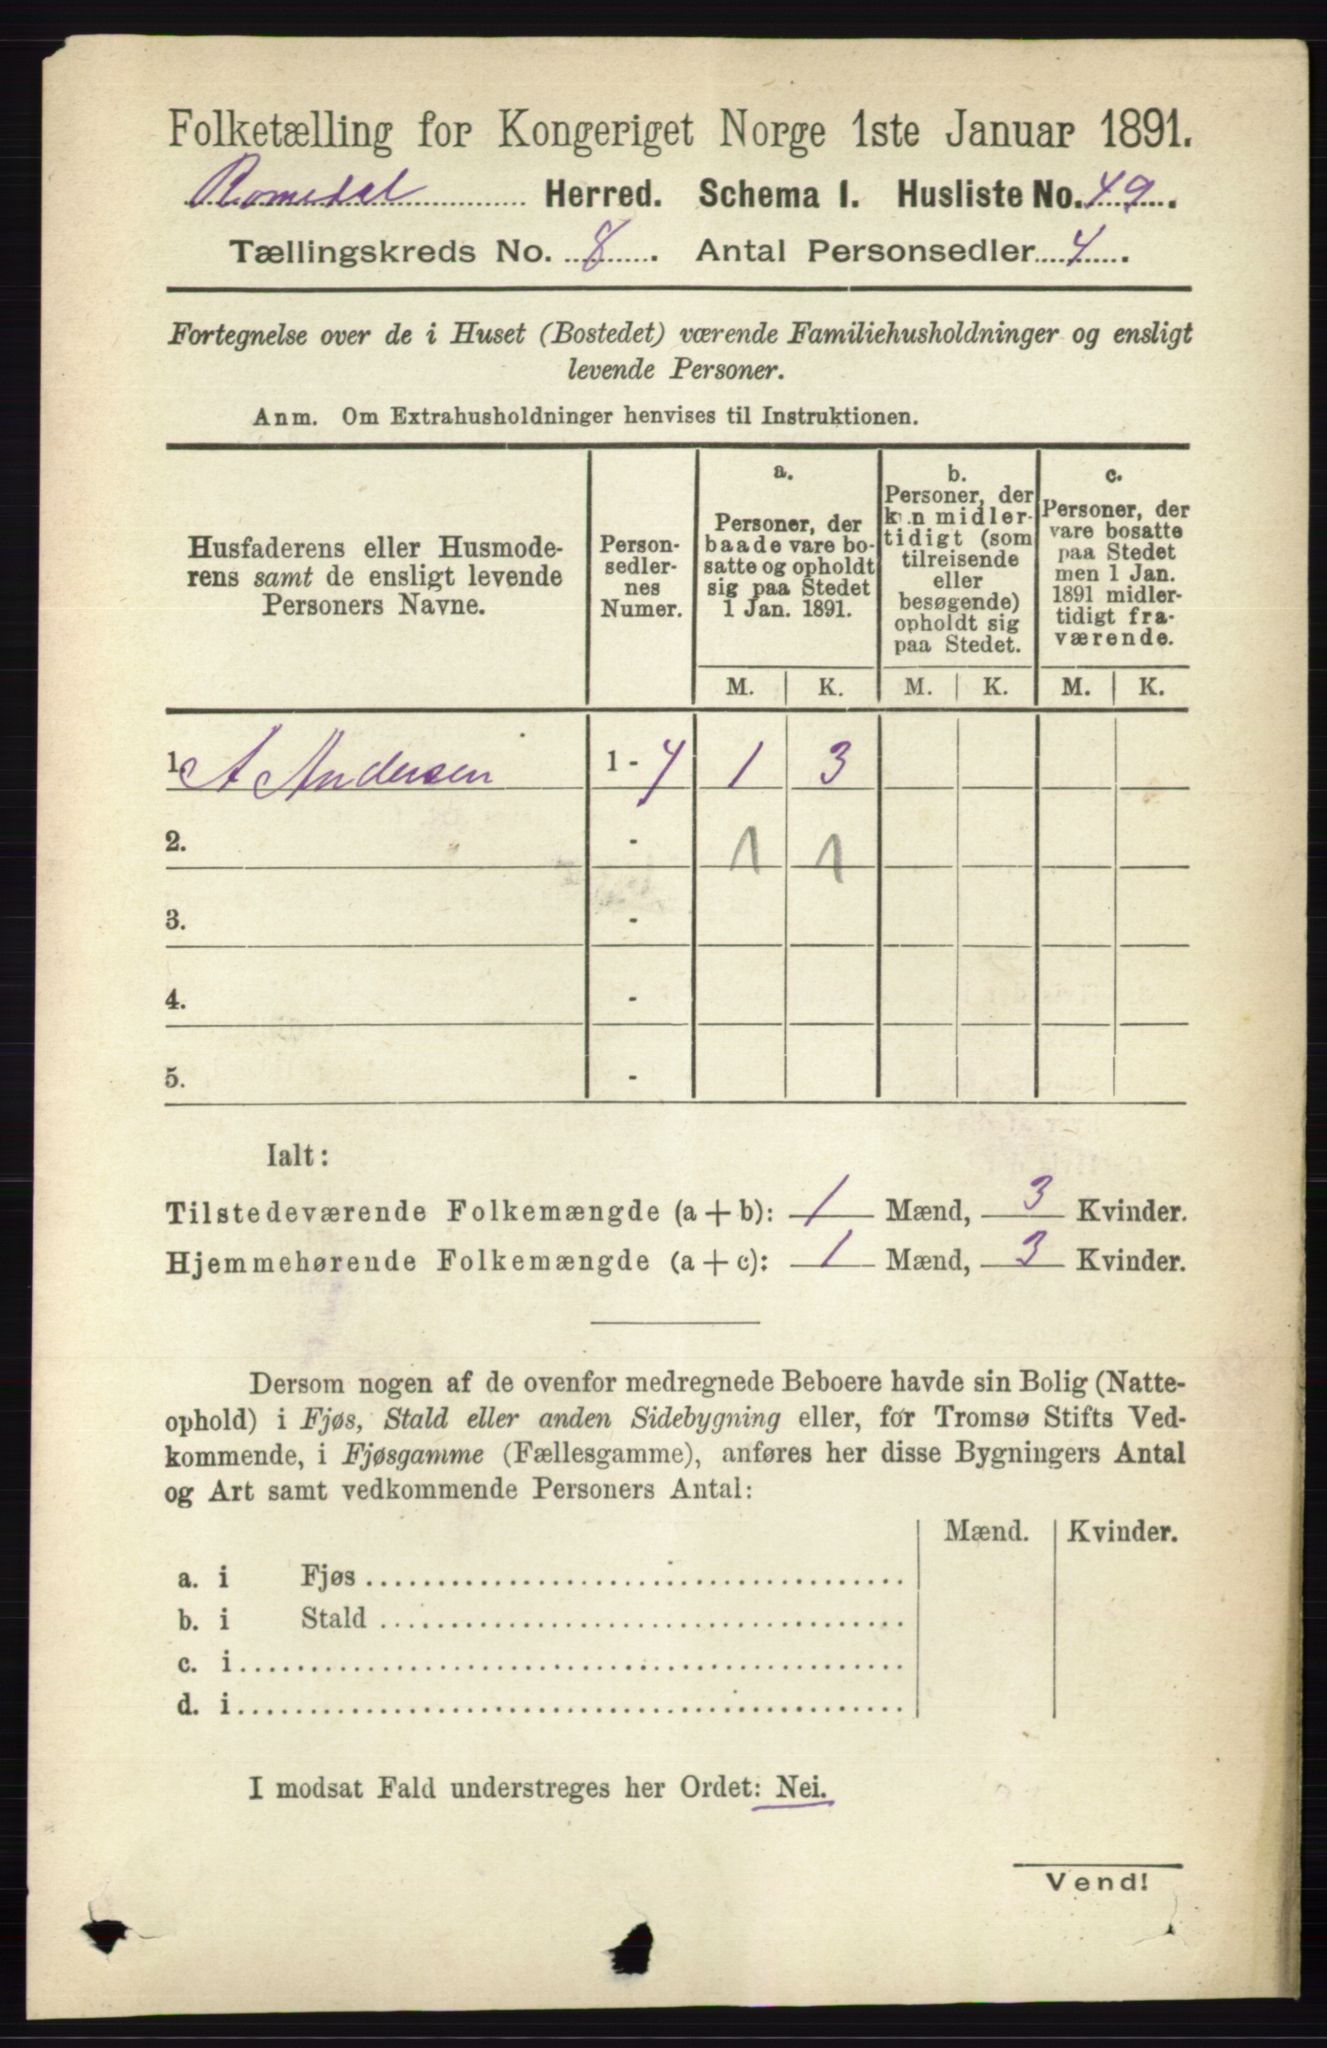 Folketælling for Kongeriget Norge 1ste Januar 1891.
Romedal Herred. Schema I. Husliste No. 49.
Tællingskreds No. 8. Antal Personsedler 4.
Fortegnelse over de i Huset (Bostedet) værende Familiehusholdninger og ensligt
levende Personer.
Anm. Om Extrahusholdninger henvises til Instruktionen.
Husfaderens eller Husmode-
rens samt de ensligt levende
Personers Navne.
Person-
sedler-
nes
Numer.
a.
Personer, der
baade vare bo-
satte og opholdt
sig paa Stedet
1 Jan. 1891.
b.
Personer, der
kun midler-
tidigt (som
tilreisende
eller
besøgende)
opholdt sig
paa Stedet.
c.
Personer, der
vare bosatte
paa Stedet
men 1 Jan.
1891 midler-
tidigt fra-
værende.
M. K. M. K. M. K.
1. A Andersen 1 - 4 1 3
2. - 1 1
3. -
4. -
5. -
Ialt:
Tilstedeværende Folkemængde (a + b): 1 Mænd, 3 Kvinder.
Hjemmehørende Folkemængde (a + c): 1 Mænd, 3 Kvinder.
Dersom nogen af de ovenfor medregnede Beboere havde sin Bolig (Natte-
ophold) i Fjøs, Stald eller anden Sidebygning eller, for Tromsø Stifts Ved-
kommende, i Fjøsgamme (Fællesgamme), anføres her disse Bygningers Antal
og Art samt vedkommende Personers Antal:
Mænd. Kvinder.
a. i Fjøs
b. i Stald
c. i
d. i
I modsat Fald understreges her Ordet: Nei.
Vend!